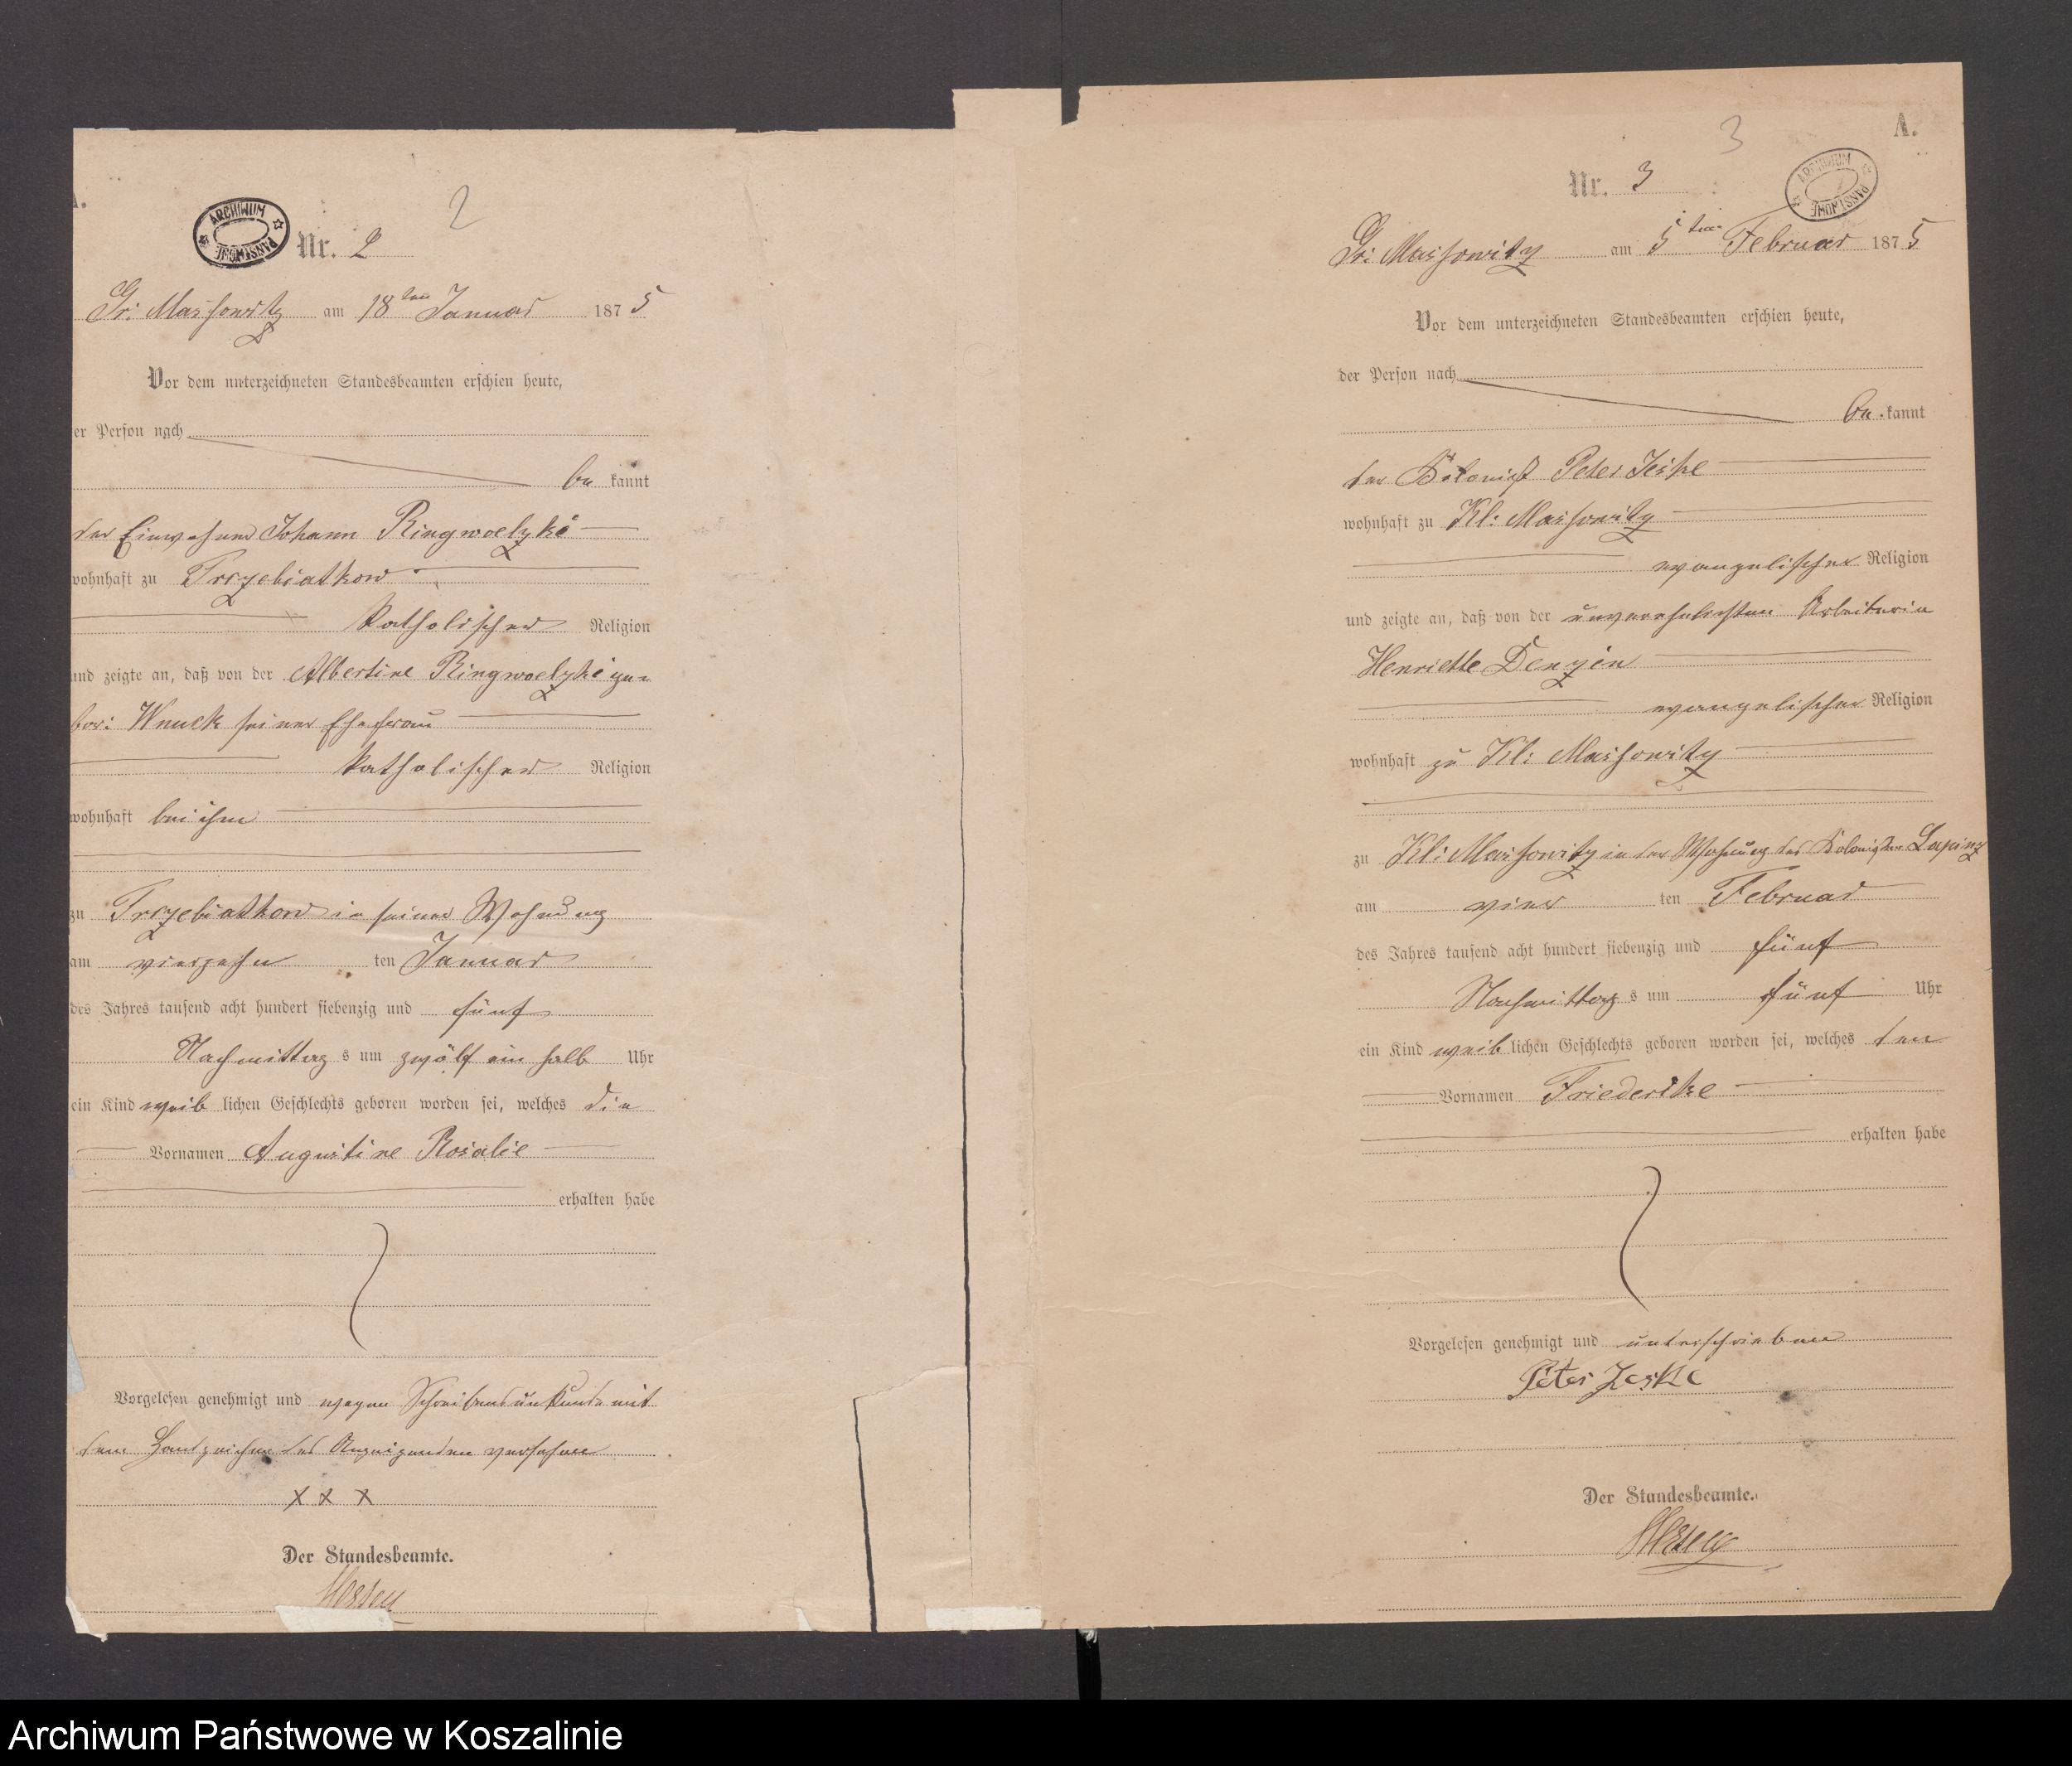 A.
2
ARCHIWUM PAŃSTWOWE
Nr. 2
Gr: Massowitz am 18ten Januar 1875
Vor dem unterzeichneten Standesbeamten erschien heute,
er Person nach
be kannt
der Einwohner Johann Ringwoelzki
wohnhaft zu Trzebiatkow
katholischer Religion
und zeigte an, daß von der Albertine Ringwoelzki ge=
bor: Wnuck seiner Ehefrau
katholischer Religion
wohnhaft bei ihm
zu Trzebiatkow in seiner Wohnung
am vierzehn ten Januar
des Jahres tausend acht hundert siebenzig und fünf
Nachmittag s um zwölf ein halb Uhr
ein Kind weib lichen Geschlechts geboren worden sei, welches die
Vornamen Augustine Rosalie
erhalten habe
Vorgelesen genehmigt und wegen Schreibensunkunde mit
dem Handzeichen des Anzeigenden versehen
x x x
Der Standesbeamte.
A.
3
ARCHIWUM PAŃSTWOWE
Nr. 3
Gr: Massowitz am 5ten Februar 1875
Vor dem unterzeichneten Standesbeamten erschien heute,
der Person nach
be kannt
der Kolonist Peter Jeske
wohnhaft zu Kl: Massowitz
evangelischer Religion
und zeigte an, daß von der unverehelichten Arbeiterin
Henriette Denzin
evangelischer Religion
wohnhaft zu Kl: Massowitz
zu Kl: Massowitz in der Wohnung des Kolonisten Lapinz
am vier ten Februar
des Jahres tausend acht hundert siebenzig und fünf
Nachmittag s um fünf Uhr
ein Kind weib lichen Geschlechts geboren worden sei, welches den
Vornamen Friederike
erhalten habe
Vorgelesen genehmigt und unterschrieben
Peter Jeske
Der Standesbeamte.
Archiwum Państwowe w Koszalinie